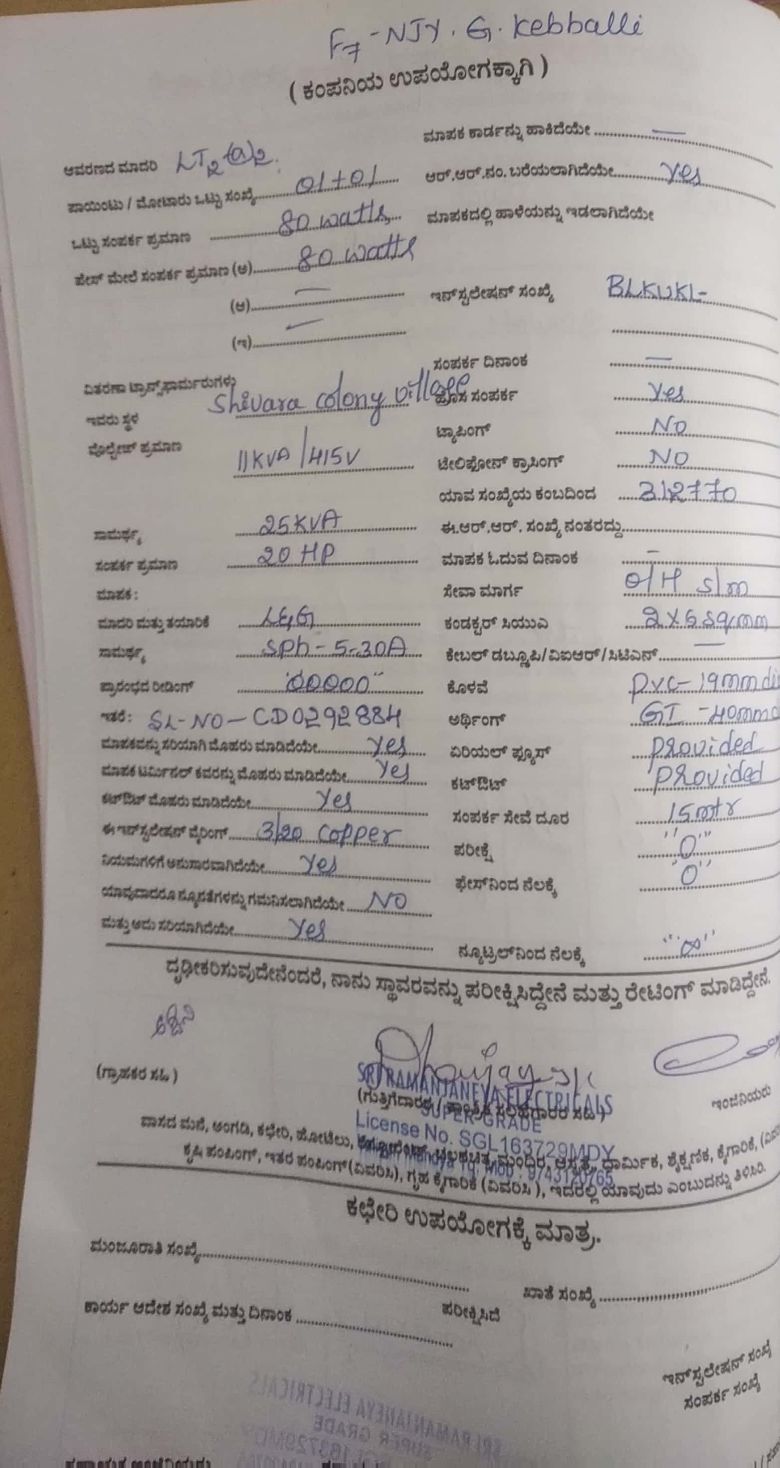 F7 - NJY. G. Kebballi
( ಕಂಪನಿಯ ಉಪಯೋಗಕ್ಕಾಗಿ )
ಮಾಪಕ ಕಾರ್ಡನ್ನು ಹಾಕಿದೆಯೇ —
ಆವರಣದ ಮಾದರಿ LT2(a)2.
ಆರ್.ಆರ್.ನಂ. ಬರೆಯಲಾಗಿದೆಯೇ yes
ಪಾಯಿಂಟು / ಮೋಟಾರು ಒಟ್ಟು ಸಂಖ್ಯೆ 01+01
ಮಾಪಕದಲ್ಲಿ ಹಾಳೆಯನ್ನು ಇಡಲಾಗಿದೆಯೇ
ಒಟ್ಟು ಸಂಪರ್ಕ ಪ್ರಮಾಣ 80 watts
ಫೇಸ್ ಮೇಲೆ ಸಂಪರ್ಕ ಪ್ರಮಾಣ (ಅ) 80 watts
(ಆ) —
ಇನ್‌ಸ್ಟಲೇಷನ್ ಸಂಖ್ಯೆ BLKUKL-
(ಇ) —
ಸಂಪರ್ಕ ದಿನಾಂಕ —
ವಿತರಣಾ ಟ್ರಾನ್ಸ್‌ಫಾರ್ಮರುಗಳು
ಇವರು ಸ್ಥಳ Shivara colony village
ಹೊಸ ಸಂಪರ್ಕ Yes
ಟ್ಯಾಪಿಂಗ್ NO
ವೊಲ್ಟೇಜ್ ಪ್ರಮಾಣ 11KVA/415V
ಟೇಲಿಫೋನ್ ಕ್ರಾಸಿಂಗ್ NO
ಯಾವ ಸಂಖ್ಯೆಯ ಕಂಬದಿಂದ 312770
ಸಾಮರ್ಥ್ಯ 25KVA
ಈ.ಆರ್.ಆರ್. ಸಂಖ್ಯೆ ನಂತರದ್ದು
ಸಂಪರ್ಕ ಪ್ರಮಾಣ 20 HP
ಮಾಪಕ ಓದುವ ದಿನಾಂಕ —
ಮಾಪಕ :
ಸೇವಾ ಮಾರ್ಗ O/H s/m
ಮಾದರಿ ಮತ್ತು ತಯಾರಿಕೆ L&G
ಕಂಡಕ್ಟರ್ ಸಿಯುಎ 2X6sq/mm
ಸಾಮರ್ಥ್ಯ sph-5-30A
ಕೇಬಲ್ ಡಬ್ಲೂಪಿ/ವಿಐಆರ್/ಸಿಟಿಎಸ್ —
ಪ್ರಾರಂಭದ ರೀಡಿಂಗ್ "00000"
ಕೊಳವೆ PVC-19mm di
ಇತರೆ : SL-NO-CD0292884
ಅರ್ಥಿಂಗ್ GI -40mmd
ಮಾಪಕವನ್ನು ಸರಿಯಾಗಿ ಮೊಹರು ಮಾಡಿದೆಯೇ Yes
ಏರಿಯಲ್ ಫ್ಯೂಸ್ provided
ಮಾಪಕ ಟರ್ಮಿನಲ್ ಕವರನ್ನು ಮೊಹರು ಮಾಡಿದೆಯೇ Yes
ಕಟ್‌ಔಟ್ provided
ಕಟ್‌ಔಟ್ ಮೊಹರು ಮಾಡಿದೆಯೇ Yes
ಸಂಪರ್ಕ ಸೇವೆ ದೂರ 15mtr
ಈ ಇನ್‌ಸ್ಟಲೇಷನ್ ವೈರಿಂಗ್ 3/20 Copper
ಪರೀಕ್ಷೆ "0"
ನಿಯಮಗಳಿಗೆ ಅನುಸಾರವಾಗಿದೆಯೇ Yes
ಫೇಸ್‌ನಿಂದ ನೆಲಕ್ಕೆ "0"
ಯಾವುದಾದರೂ ನ್ಯೂನತೆಗಳನ್ನು ಗಮನಿಸಲಾಗಿದೆಯೇ NO
ಮತ್ತು ಅದು ಸರಿಯಾಗಿದೆಯೇ Yes
ನ್ಯೂಟ್ರಲ್‌ನಿಂದ ನೆಲಕ್ಕೆ "∞"
ದೃಢೀಕರಿಸುವುದೇನೆಂದರೆ, ನಾನು ಸ್ಥಾವರವನ್ನು ಪರೀಕ್ಷಿಸಿದ್ದೇನೆ ಮತ್ತು ರೇಟಿಂಗ್ ಮಾಡಿದ್ದೇನೆ.
(ಗ್ರಾಹಕರ ಸಹಿ )
SRI RAMANJANEYA ELECTRICALS
ಇಂಜಿನಿಯರು
SUPER GRADE
License No. SGL163729MDY
Mob : 9743120765
ವಾಸದ ಮನೆ, ಅಂಗಡಿ, ಕಛೇರಿ, ಹೋಟೆಲು, ಮಂದಿರ, ಆಸ್ಪತ್ರೆ, ಧಾರ್ಮಿಕ, ಶೈಕ್ಷಣಿಕ, ಕೈಗಾರಿಕೆ,
ಕೃಷಿ ಪಂಪಿಂಗ್, ಇತರ ಪಂಪಿಂಗ್(ವಿವರಿಸಿ), ಗೃಹ ಕೈಗಾರಿಕೆ (ವಿವರಿಸಿ ), ಇದರಲ್ಲಿ ಯಾವುದು ಎಂಬುದನ್ನು ತಿಳಿಸಿರಿ.
ಕಛೇರಿ ಉಪಯೋಗಕ್ಕೆ ಮಾತ್ರ.
ಮಂಜೂರಾತಿ ಸಂಖ್ಯೆ
ಖಾತೆ ಸಂಖ್ಯೆ
ಕಾರ್ಯ ಆದೇಶ ಸಂಖ್ಯೆ ಮತ್ತು ದಿನಾಂಕ
ಪರೀಕ್ಷಿಸಿದೆ
ಇನ್‌ಸ್ಟಲೇಷನ್ ಸಂಖ್ಯೆ
ಸಂಪರ್ಕ ಸಂಖ್ಯೆ